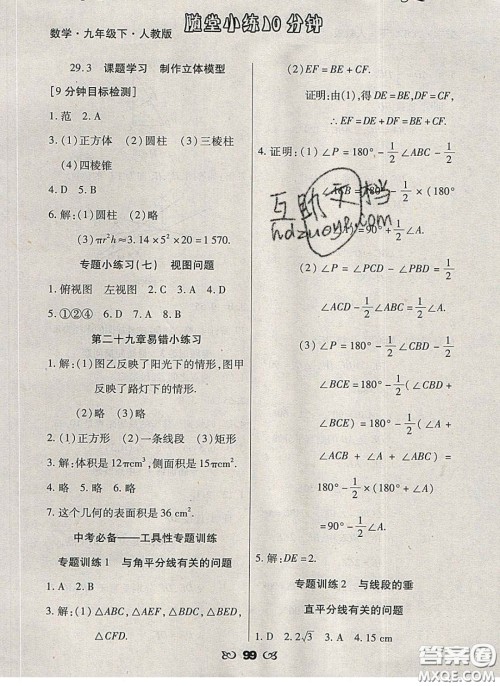 数学·九年级下·人教版
随堂小练10分钟
29.3 课题学习 制作立体模型
[9分钟目标检测]
1. 范 2. A
3. (1)正方体 (2)圆柱 (3)三棱柱
(4)四棱锥
4. D 5. C
6. 解:(1)圆柱 (2)略
(3)πr²h≈3.14×5²×20=1 570.
专题小练习(七) 视图问题
1. 俯视图 左视图 2. C 3. A 4. D
5. ①②④ 6. D
第二十九章易错小练习
1. 解:(1)图乙反映了阳光下的情形,图甲
反映了路灯下的情形.
(2)略 (3)略
2. (1)正方形 (2)一条线段 (3)矩形
3. 解:体积是12πcm³,侧面积是15πcm².
4. 略 5. 略 6. 略
7. 这个几何的表面积是36 cm².
中考必备——工具性专题训练
专题训练1 与角平分线有关的问题
1. A 2. B
3. 解:(1)△ABC,△AEF,△BDG,△DBC,
△CFD.
(2)EF=BE+CF.
证明:由(1),得DE=BE,DF=CF,
∴EF=DE+DF=BE+CF.
4. 证明:(1)∠P=180°-1/2∠ABC-1/2
=180°-1/2×(180°
=90°+1/2∠A.
(2)∠P=∠PCD-∠PBD=1/2
∠ACD-1/2∠ABC=1/2∠A.
(3)∠P=180°-1/2∠CBD-1/2
∠BCE=180°-1/2(∠CBD+
∠BCE)=180°-1/2(∠A+
∠ACB+∠A+∠ABC)=
180°-1/2×(180°+∠A)=
90°-1/2∠A.
5. 解:DE=2.
专题训练2 与线段的垂
直平分线有关的问题
1. D 2. 2√3 3. A 4. 15 cm
99
互助文档
hdzuoye.com
答案圈
MXQE.COM